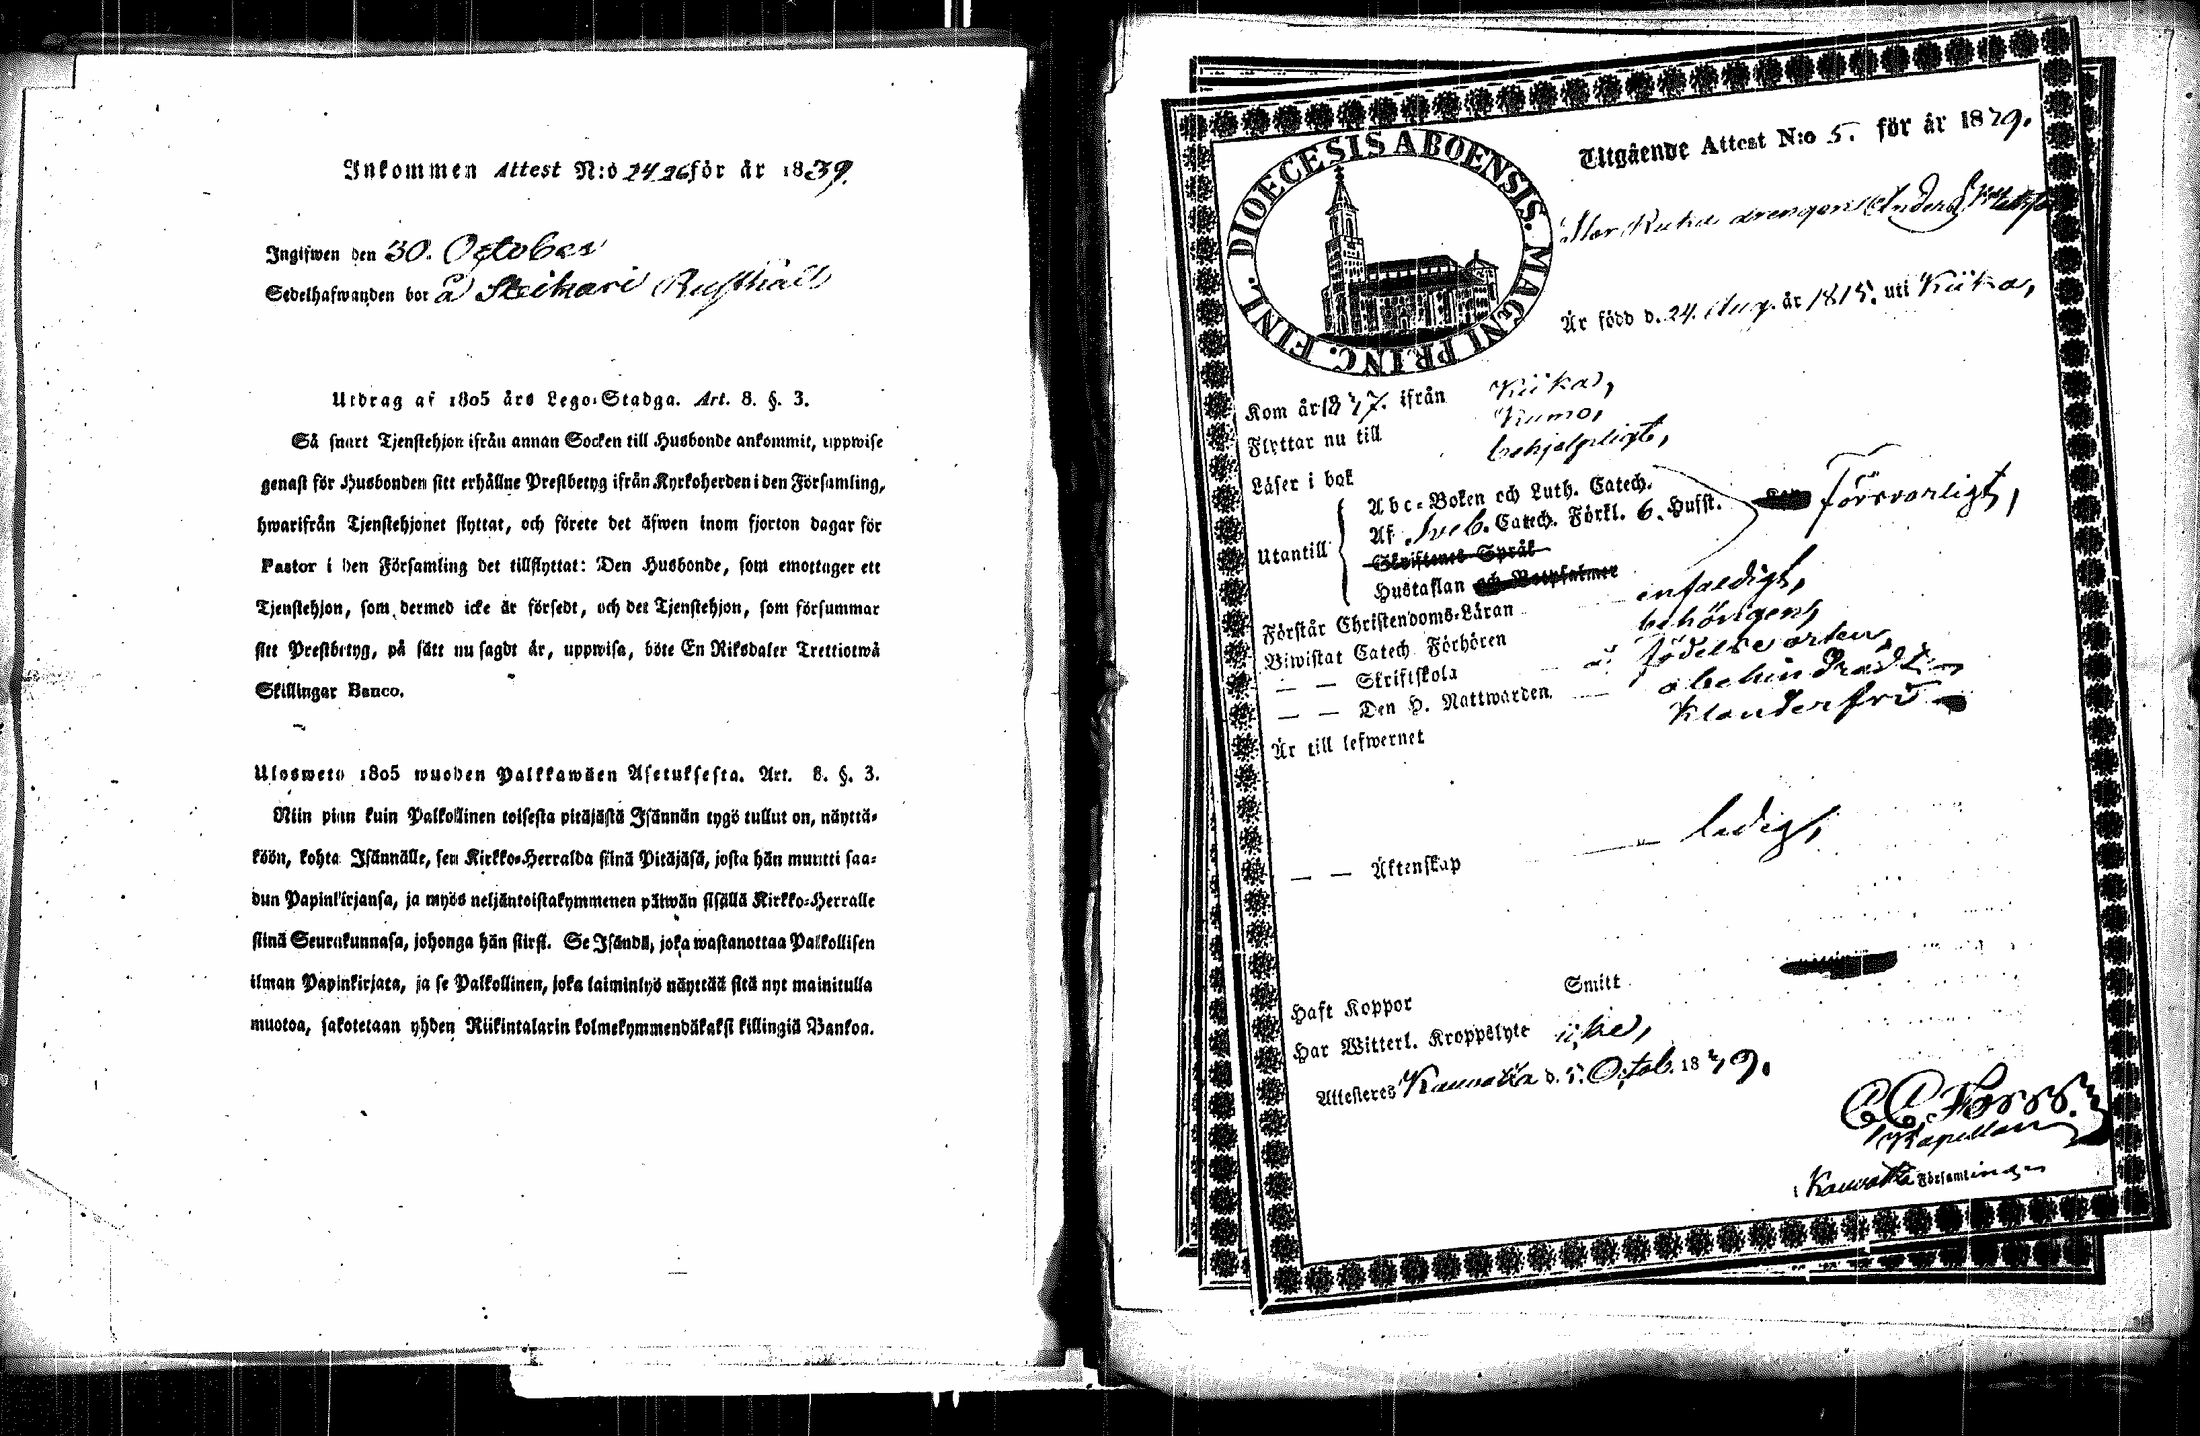 Inkommen Attest N:o 24.26 för år 1839.
Ingifwen den 30. October
Sedelhafwanden bor å Rusthåll
Utdrag af 1805 års Lego-Stadga. Art. 8. §. 3.
Så snart Tjenstehjon ifrån annan Socken till Husbonde ankommit, uppwise
genast för Husbonden sitt erhållne Prestbetyg ifrån Kyrkoherden i den Församling,
hwarifrån Tjenstehjonet flyttat, och förete det äfwen inom fjorton dagar för
Pastor i den Församling det tillflyttat: Den Husbonde, som emottager ett
Tjenstehjon, som dermed icke är försedt, och det Tjenstehjon, som försummar
sitt Prestbetyg, på sätt nu sagdt är, uppwisa, böte En Riksdaler Trettiotwå
Skillingar Banco.
Ulosweto 1805 wuoden Palkkawäen Asetuksesta. Art. 8. §. 3.
Niin pian kuin Palkollinen toisesta pitäjästä Isännän tygö tullut on, näyttä-
köön, kohta Isännälle, sen Kirkko-Herralda siinä Pitäjäsä, josta hän muutti saa-
dun Papinkirjansa, ja myös neljäntoistakymmenen päiwän sisällä Kirkko-Herralle
siinä Seurakunnasa, johonga hän siirsi. Se Isändä, joka wastanottaa Palkollisen
ilman Papinkirjata, ja se Palkollinen, joka laiminlyö näyttää sitä nyt mainitulla
muotoa, sakotetaan yhden Riikintalarin kolmekymmendäkaksi killingiä Bankoa.
DIOECESIS ABOENSIS. MAGNI PRINC. FINL.
Utgående Attest N:o 5. för år 1839.
drengen Anders
Är född d. 24. Aug. år 1815. uti Kiika,
Kom år 1837. ifrån Kiika,
Flyttar nu till Kumo,
Läser i bok behjelpligt,
Utantill
Abc-Boken och Luth. Catech.
Af Sveb. Catech. Förkl. 6. Hufst. Försvarligt,
Skriftenes Språk
Hustaflan och Botpsalmer
Förstår Christendoms-Läran enfaldigt,
Biwistat Catech. Förhören behörigen,
— — Skriftskola å födelseorten,
— — Den H. Nattwarden obehindradt
Är till lefwernet klanderfri
— — Äktenskap ledig,
Haft Koppor Smitt
Har Witterl. Kroppslyte icke,
Attesteres Kauvatsa d. 5. Octob. 1839.
C C Forss.
Kapellan
i Kauvatsa Församlingen